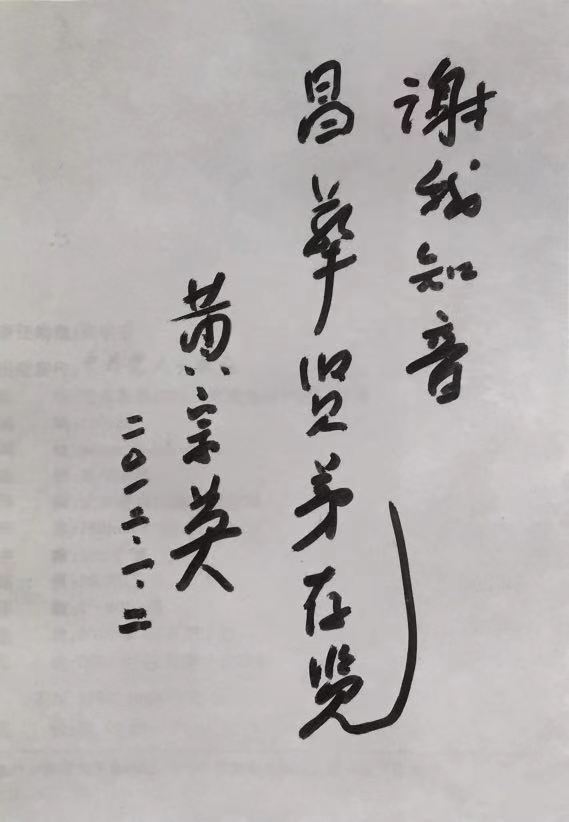 谢我知音
昌华贤弟存览
黄宗英
二〇一三.一.二